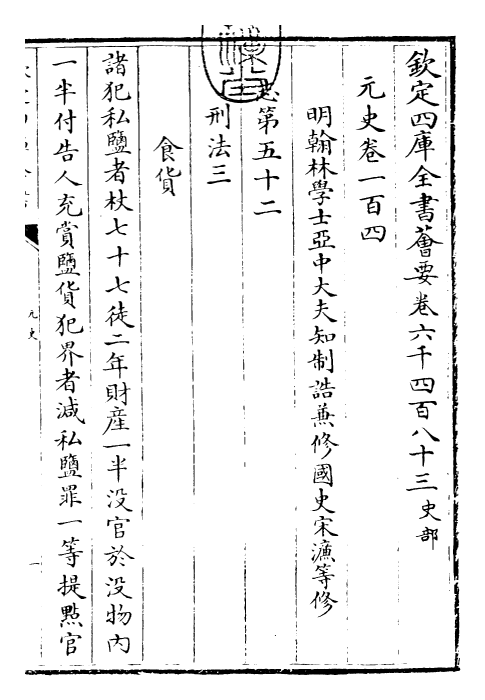 欽定四庫全書薈要卷六千四百八十三史部
元史卷一百四
明翰林學士亞中大夫知制誥兼修國史宋濂等修
志第五十二
刑法三
食貨
諸犯私鹽者杖七十七徒二年財產一半没官於没物内
一半付告人充賞鹽貨犯界者減私鹽罪一等提點官
元史
一